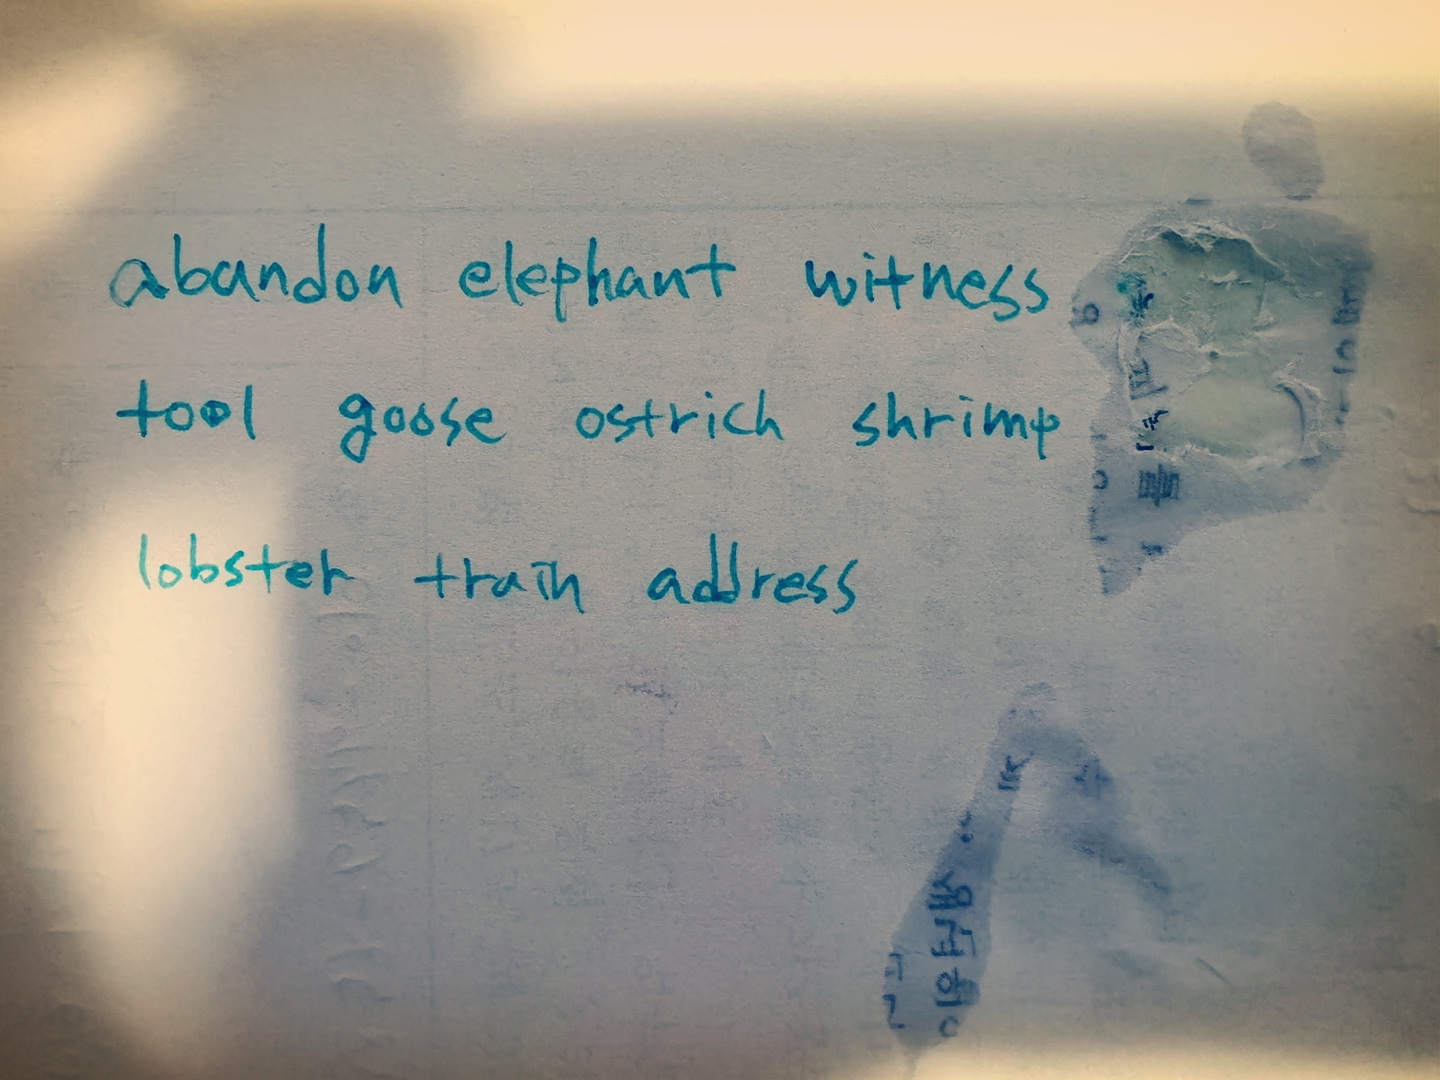 abandon elephant witness
tool goose ostrich shrimp
lobster train address